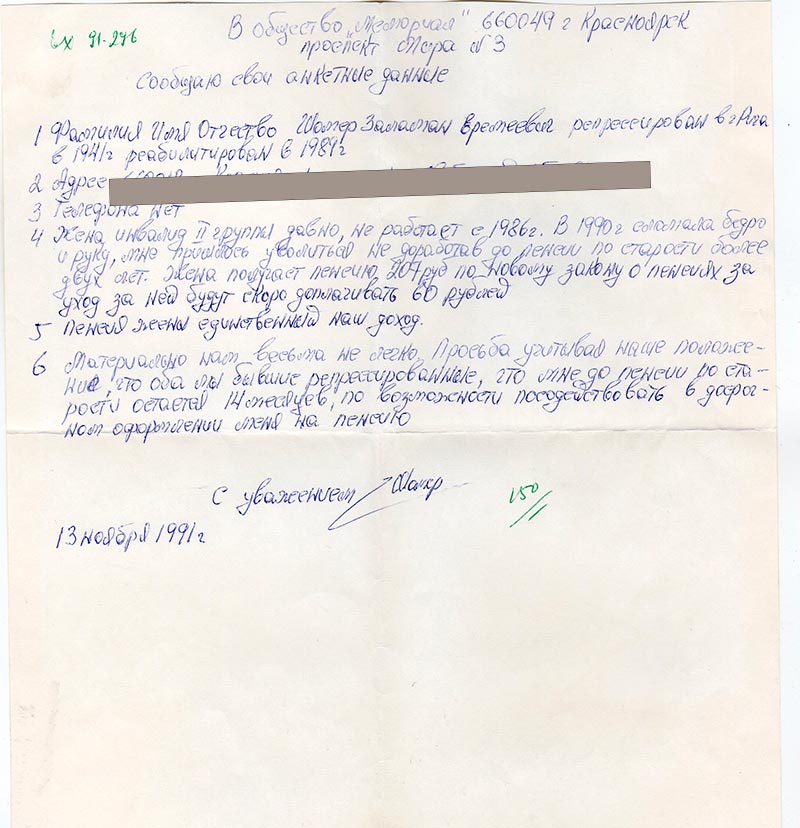 вх 91-296
В общество "Мемориал" 660049 г Красноярск
проспект Мира N 3
Сообщаю свои анкетные данные
1 Фамилия Имя Отчество Шомер Заламан Еремеевич репрессирован в г Рига
в 1941г реабилитирован в 1989г
2 Адрес
3 Телефона нет
4 Жена инвалид II группы давно, не работает с 1986г. В 1990г сломала бедро
и руку, мне пришлось уволиться не доработав до пенсии по старости более
двух лет. Жена получает пенсию 207 руб по новому закону о пенсиях за
уход за ней будут скоро доплачивать 60 рублей
5 Пенсия жены единственный наш доход.
6 Материально нам весьма не легко. Просьба учитывая наше положе-
ние, что оба мы бывшие репрессированные, что мне до пенсии по ста-
рости остается 14 месяцев, по возможности посодействовать в досроч-
ном оформлении меня на пенсию
С уважением Шомер
150
13 ноября 1991г